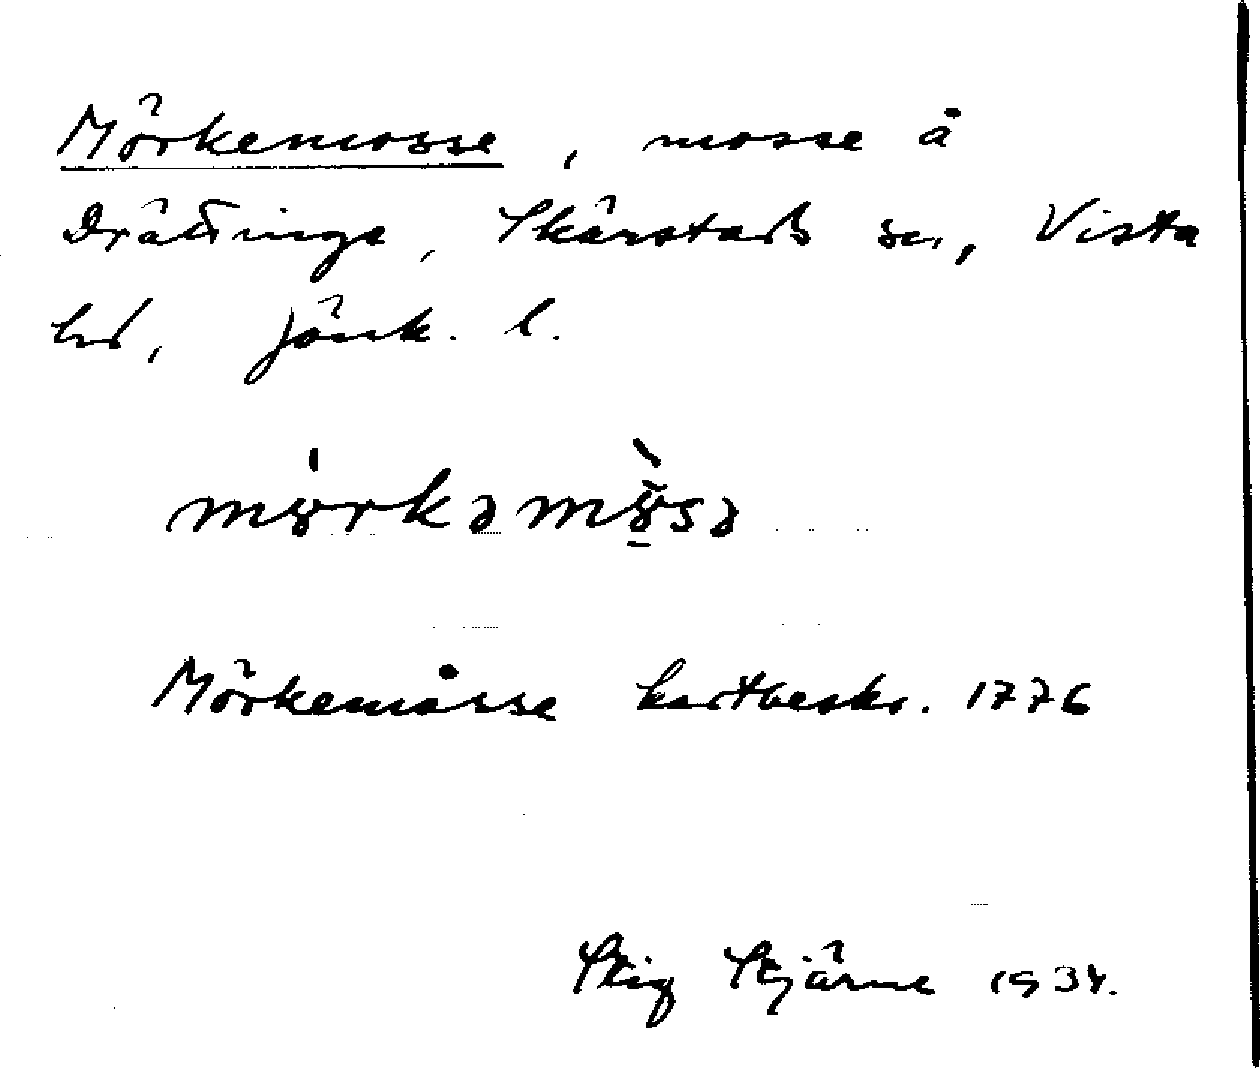 Mörkemosse, mosse å
Drättinge, Skärstads sn, Vista
hd, Jönk. l.
mörkəmo̱sə
Mörkemåsse kartbeskr. 1776
Stig Stjärne 1934.